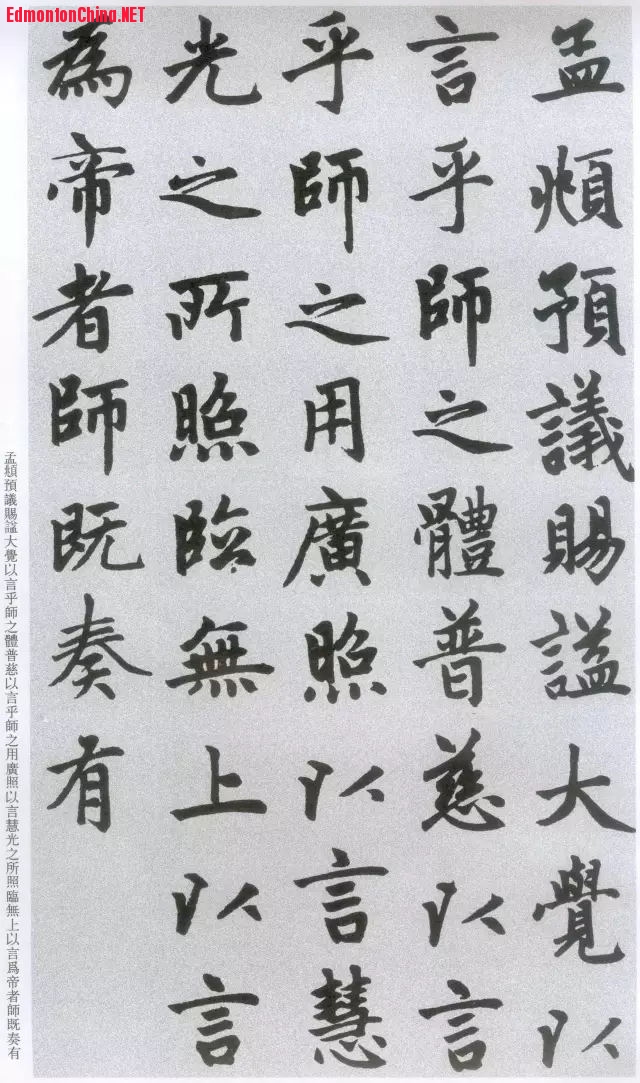 EdmontonChina.NET
孟頫預議賜謚大覺以
言乎師之體普慈以言
乎師之用廣照以言慧
光之所照臨無上以言
為帝者師既奏有
孟頫預議賜謚大覺以言乎師之體普慈以言乎師之用廣照以言慧光之所照臨無上以言爲帝者師既奏有